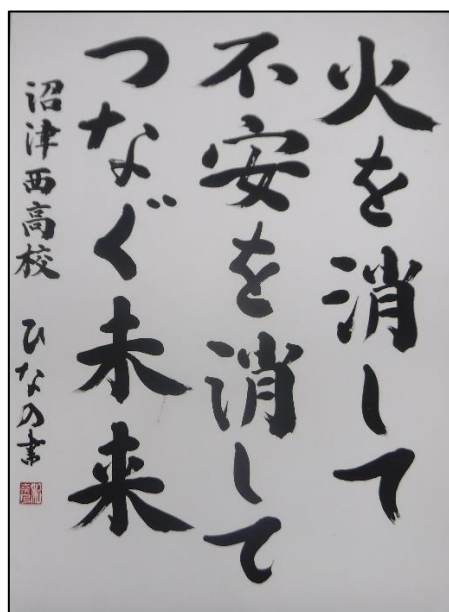 火を消して
不安を消して
つなぐ未来
沼津西高校 ひなの書